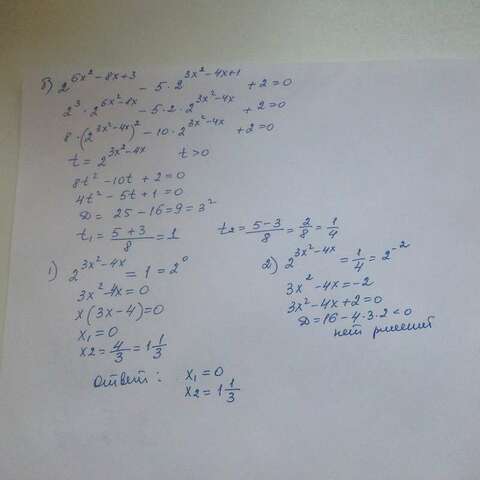 б) 2^{6x²-8x+3} - 5·2^{3x²-4x+1} + 2 = 0
2³·2^{6x²-8x} - 5·2·2^{3x²-4x} + 2 = 0
8·(2^{3x²-4x})² - 10·2^{3x²-4x} + 2 = 0
t = 2^{3x²-4x} t > 0
8t² - 10t + 2 = 0
4t² - 5t + 1 = 0
D = 25 - 16 = 9 = 3²
t₁ = (5+3)/8 = 1 t₂ = (5-3)/8 = 2/8 = 1/4
1) 2^{3x²-4x} = 1 = 2⁰
3x² - 4x = 0
x(3x-4) = 0
x₁ = 0
x₂ = 4/3 = 1 1/3
2) 2^{3x²-4x} = 1/4 = 2^{-2}
3x² - 4x = -2
3x² - 4x + 2 = 0
D = 16 - 4·3·2 < 0
нет решений
Ответ: x₁ = 0
x₂ = 1 1/3